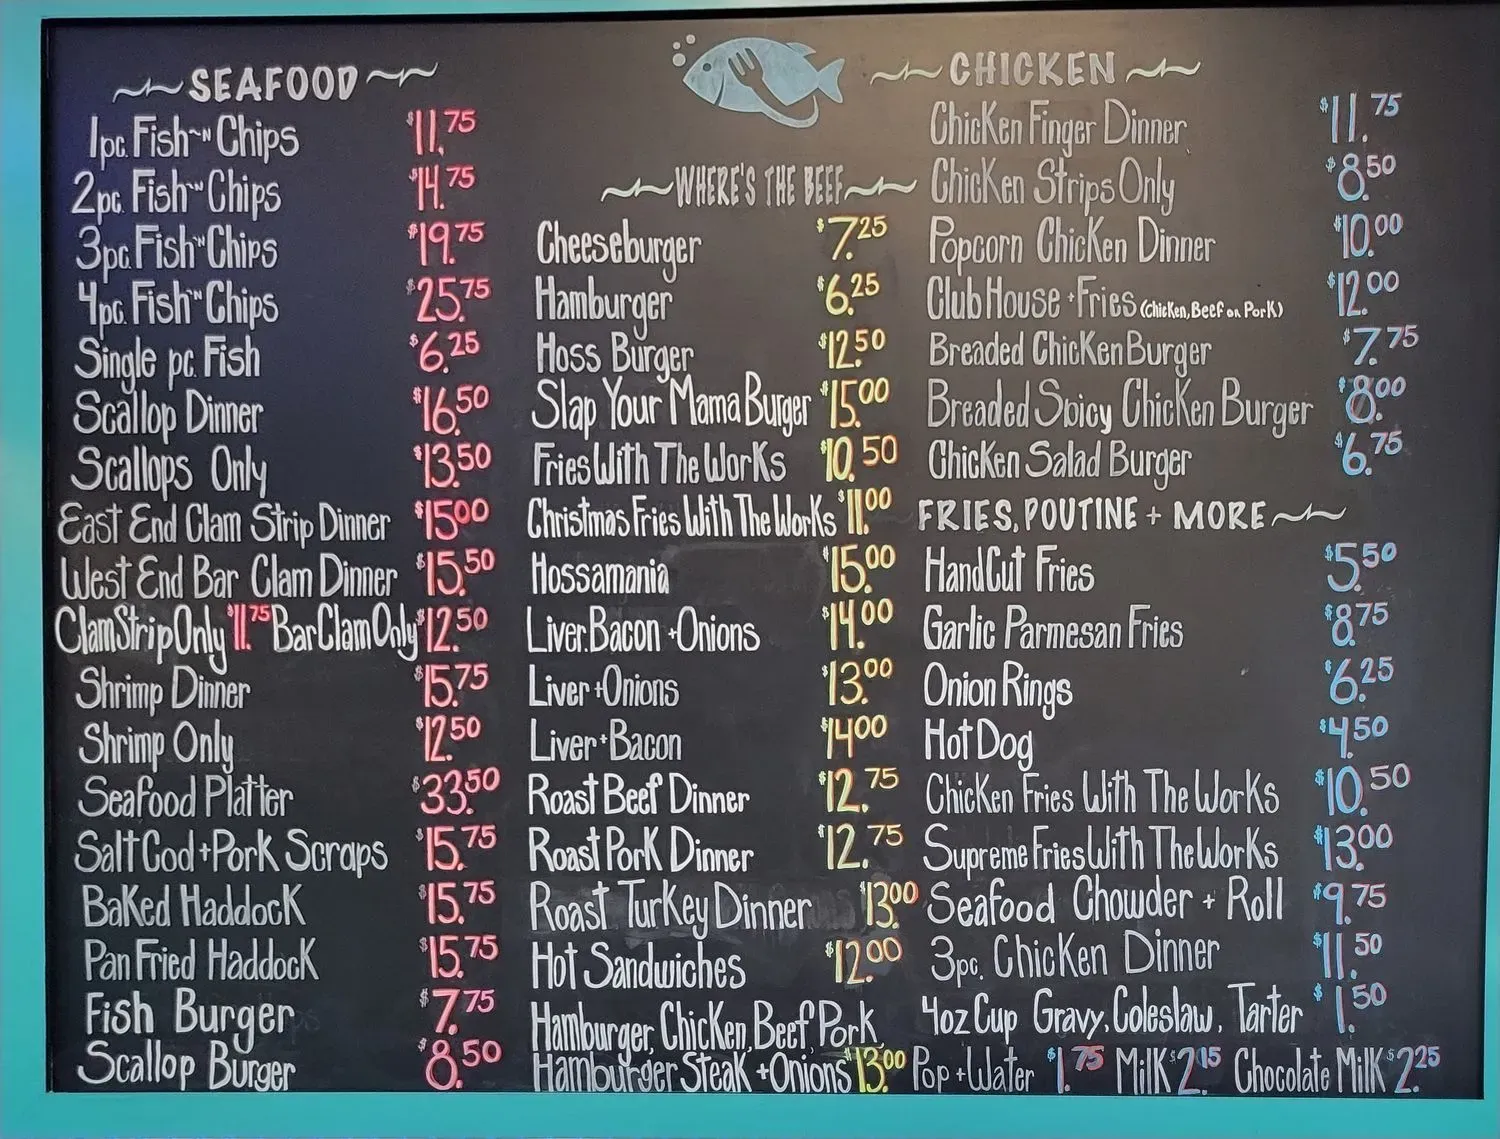 SEAFOOD
1pc. Fish~N Chips $11.75
2pc. Fish~N Chips $14.75
3pc. Fish~N Chips $19.75
4pc. Fish~N Chips $25.75
Single pc. Fish $6.25
Scallop Dinner $16.50
Scallops Only $13.50
East End Clam Strip Dinner $15.00
West End Bar Clam Dinner $15.50
Clam Strip Only $11.75 Bar Clam Only $12.50
Shrimp Dinner $15.75
Shrimp Only $12.50
Seafood Platter $33.50
Salt Cod + Pork Scraps $15.75
Baked Haddock $15.75
Pan Fried Haddock $15.75
Fish Burger $7.75
Scallop Burger $8.50
WHERE'S THE BEEF
Cheeseburger $7.25
Hamburger $6.25
Hoss Burger $12.50
Slap Your Mama Burger $15.00
Fries With The Works $10.50
Christmas Fries With The Works $11.00
Hossamania $15.00
Liver, Bacon + Onions $14.00
Liver + Onions $13.00
Liver + Bacon $14.00
Roast Beef Dinner $12.75
Roast Pork Dinner $12.75
Roast Turkey Dinner $13.00
Hot Sandwiches $12.00
Hamburger, Chicken, Beef, Pork
Hamburger Steak + Onions $13.00
CHICKEN
Chicken Finger Dinner $11.75
Chicken Strips Only $8.50
Popcorn Chicken Dinner $10.00
Club House + Fries (Chicken, Beef or Pork) $12.00
Breaded Chicken Burger $7.75
Breaded Spicy Chicken Burger $8.00
Chicken Salad Burger $6.75
FRIES, POUTINE + MORE
Hand Cut Fries $5.50
Garlic Parmesan Fries $8.75
Onion Rings $6.25
Hot Dog $4.50
Chicken Fries With The Works $10.50
Supreme Fries With The Works $13.00
Seafood Chowder + Roll $9.75
3pc. Chicken Dinner $11.50
4oz Cup Gravy, Coleslaw, Tarter $1.50
Pop + Water $1.75 Milk $2.15 Chocolate Milk $2.25